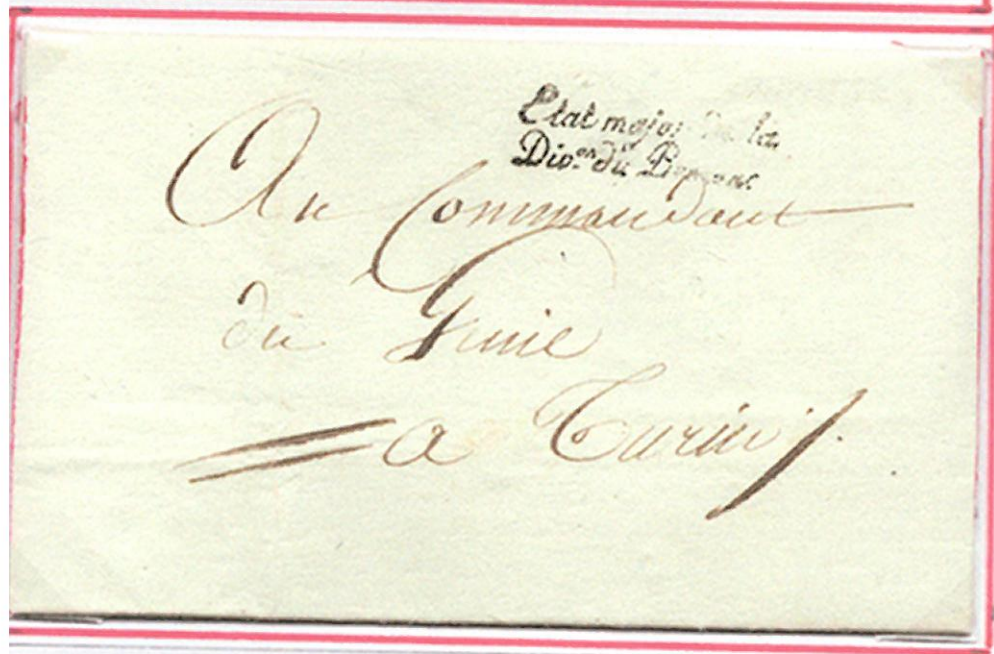 Etat major de la
Div.on du Piémont
Au Commandant
du Génie
a Turin